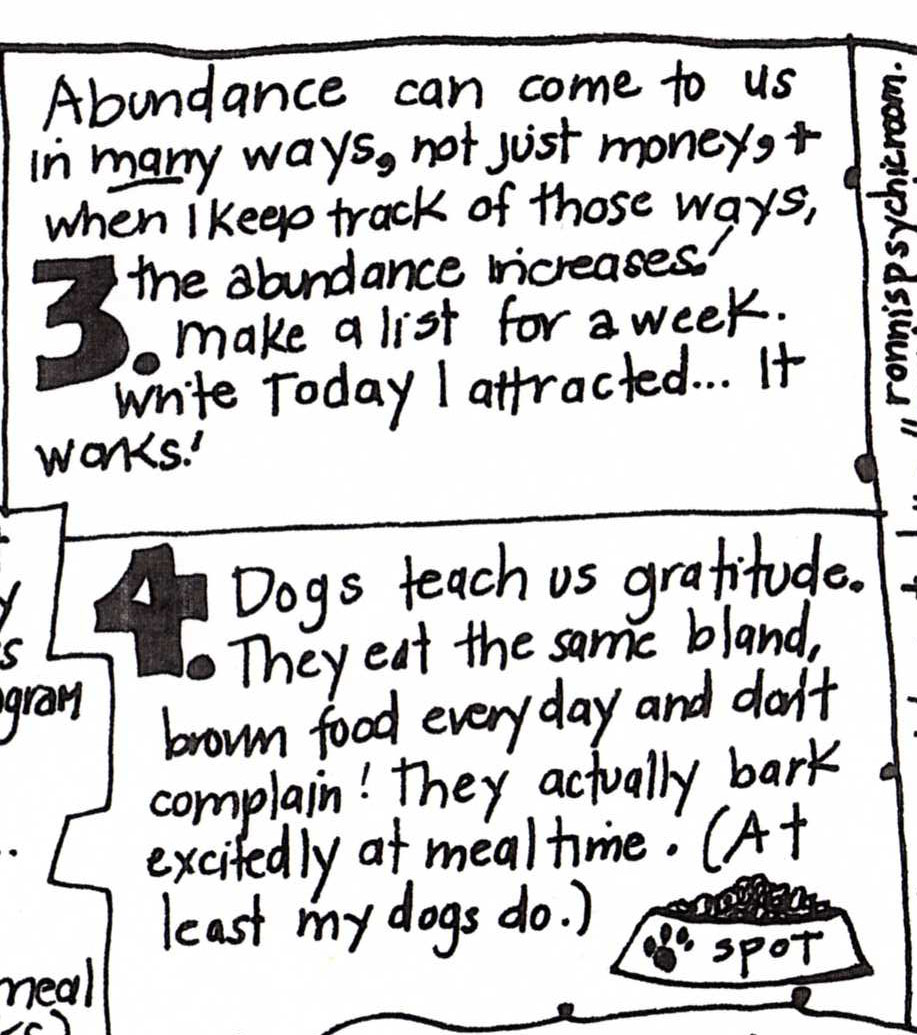 Abundance can come to us
in many ways, not just money, +
when I keep track of those ways,
3. the abundance increases!
make a list for a week.
write Today I attracted... It
works!
4. Dogs teach us gratitude.
They eat the same bland,
brown food every day and don't
complain! They actually bark
excitedly at mealtime. (At
least my dogs do.)
SPOT
ronnispsychicroom.
gram
meal